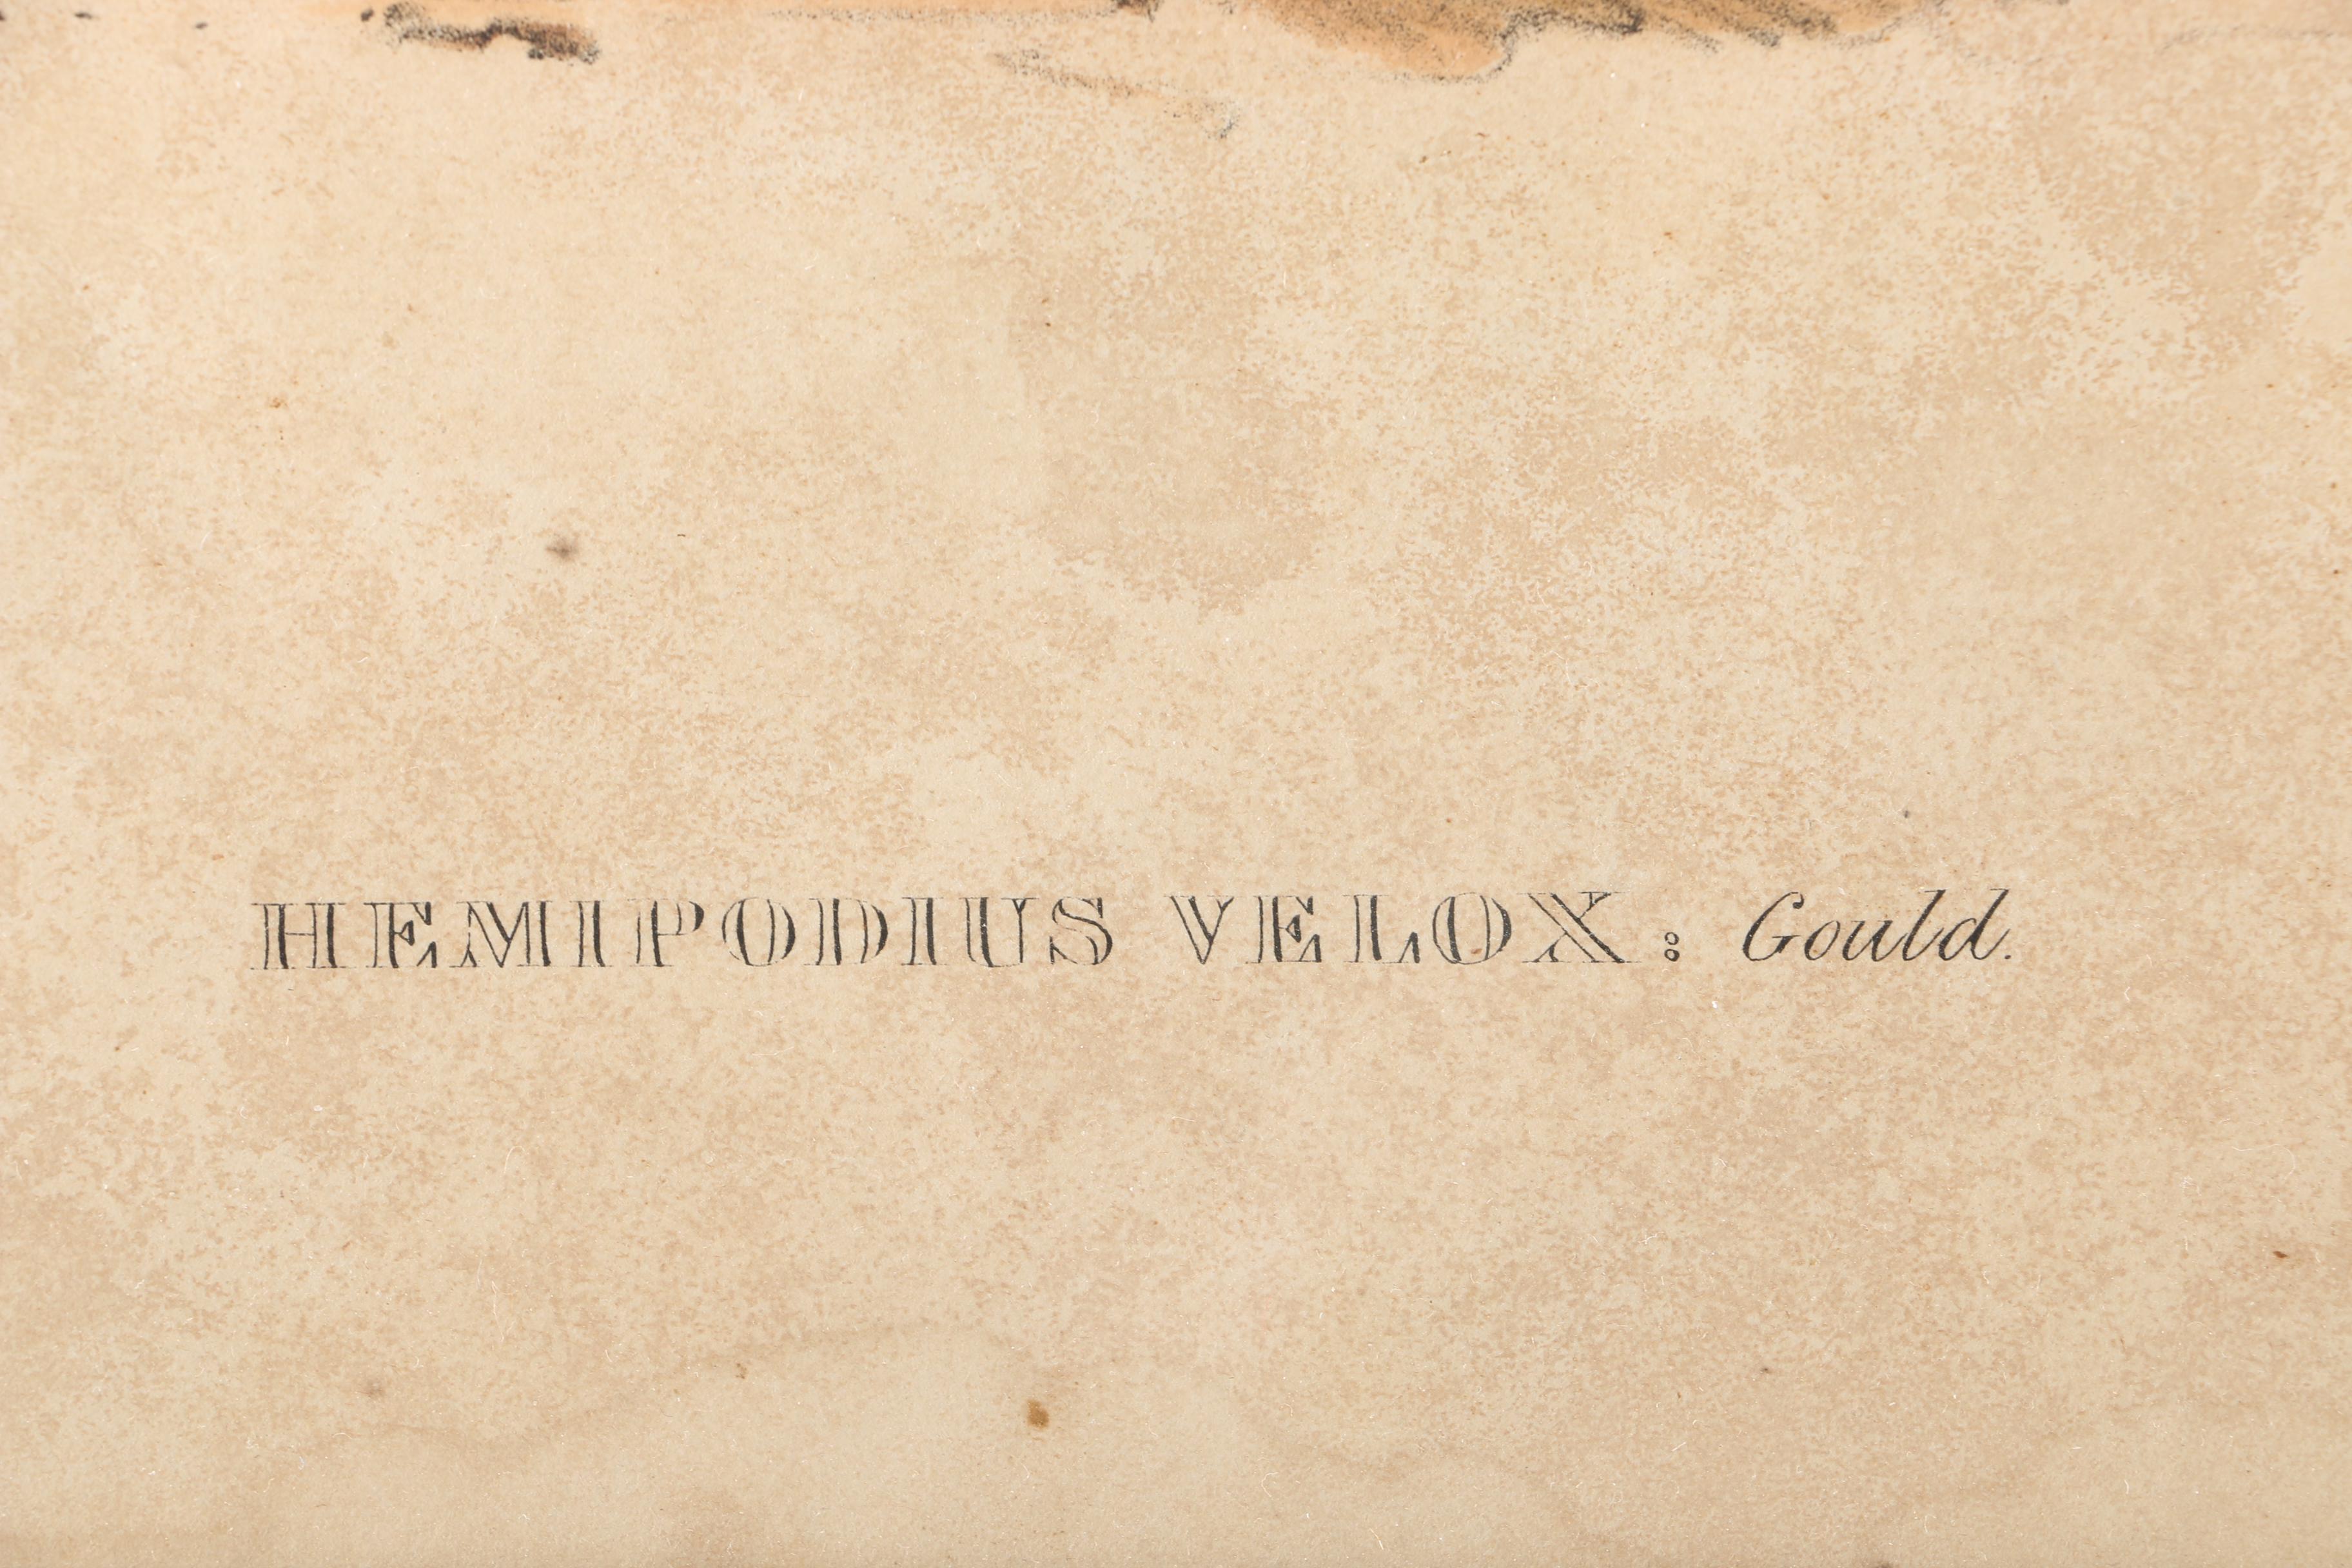 HEMIPODIUS VELOX: Gould.